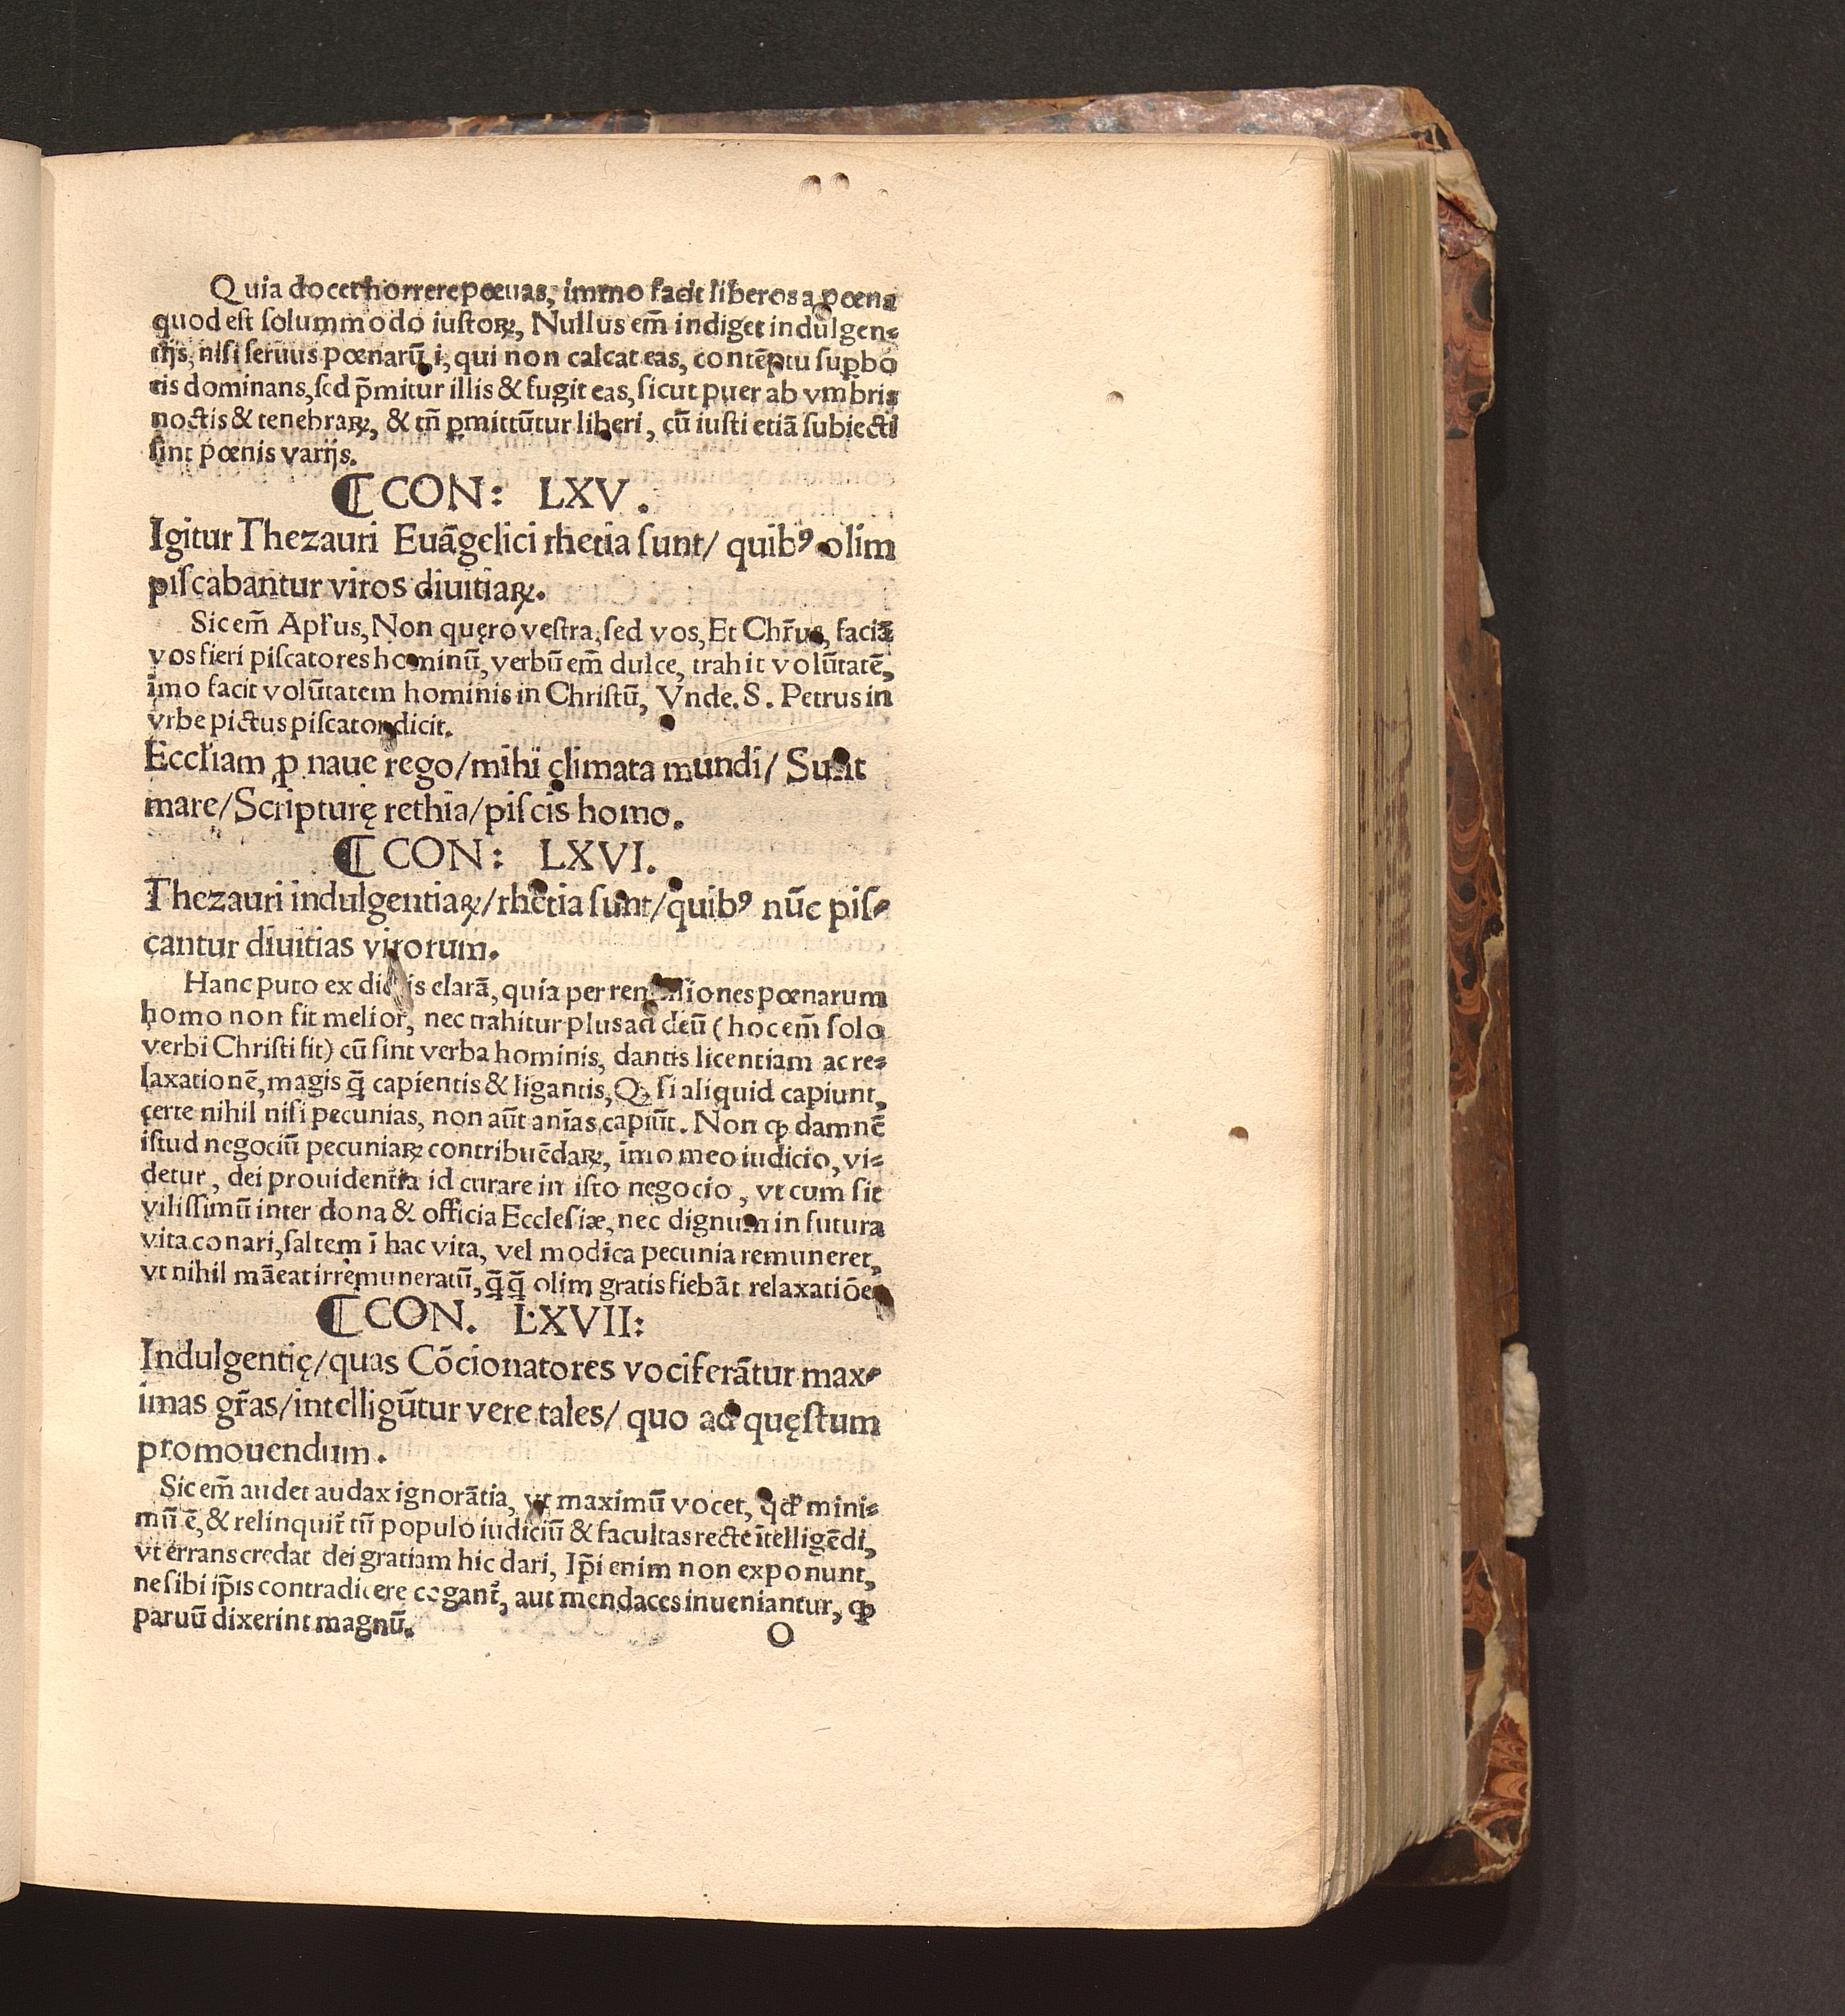 Quia docet horrere pœuas, immo facit liberos a pœna
quod est ſolummodo iuſtoꝝ, Nullus em̄ indiget indulgen⸗
tijs, niſi ſeruus pœnarū i, qui non calcat eas, contēptu ſuꝑbo
eis dominans, ſed p̄mitur illis & fugit eas, ſicut puer ab vmbris
noctis & tenebraꝝ, & tn̄ ꝑmittūtur liberi, cū iuſti etiā ſubiecti
ſint pœnis varijs.
⸿CON: LXV.
Igitur Thezauri Euāgelici rhetia ſunt/ quibꝰ olim
piſcabantur viros diuitiaꝝ.
Sic em̄ Apl̄us, Non quęro veſtra, ſed vos, Et Chr̄us, faciā
vos fieri piſcatores hominū, verbū em̄ dulce, trahit volūtatē,
īmo facit volūtatem hominis in Chriſtū, Vnde. S. Petrus in
vrbe pictus piſcator dicit.
Eccl̄iam ꝓ naue rego/mihi climata mundi/ Sunt
mare/Scripturę rethia/piſcis homo.
⸿CON: LXVI.
Thezauri indulgentiaꝝ/rhetia ſunt/quibꝰ nūc piſ⸗
cantur diuitias virorum.
Hanc puto ex dictis clarā, quia per remiſſiones pœnarum
homo non fit melior, nec trahitur plus ad deū (hoc em̄ ſolo
verbi Chriſti fit) cū ſint verba hominis, dantis licentiam ac re⸗
laxationē, magis q̄̄ capientis & ligantis, Qꝫ ſi aliquid capiunt,
certe nihil niſi pecunias, non aūt anīas capiūt. Non ꝙ damnē
iſtud negociū pecuniaꝝ contribuēdaꝝ, īmo meo iudicio, vi⸗
detur, dei prouidentia id curare in iſto negocio, vt cum ſit
viliſſimū inter dona & officia Eccleſiæ, nec dignum in futura
vita conari, ſaltem ī hac vita, vel modica pecunia remuneret,
vt nihil māeat irremuneratū, q̄q̄ olim gratis fiebāt relaxatiōes
⸿CON. LXVII:
Indulgentię/quas Cōcionatores vociferātur max⸗
imas gr̄as/intelligūtur vere tales/ quo ad quęſtum
promouendum.
Sic em̄ audet audax ignorātia, vt maximū vocet, qđ mini⸗
mū ē, & relinquit̄ tū populo iudiciū & facultas recte ītelligēdi,
vt errans credat dei gratiam hic dari, Ip̄i enim non exponunt,
ne ſibi ip̄is contradicere cogant̄, aut mendaces inueniantur, ꝙ
paruū dixerint magnū.
O